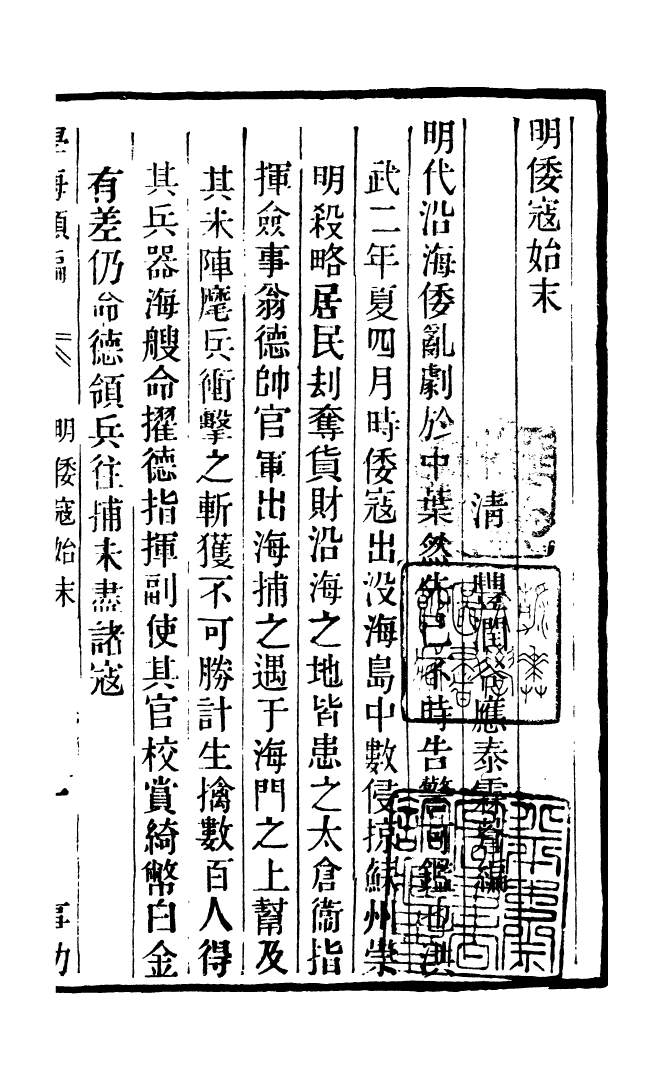 明倭寇始末
清 豐潤谷應泰霖蒼編
明代沿海倭亂劇於中葉然先已不時告警可鑑也洪
武二年夏四月時倭寇出没海島中數侵掠蘇州崇
明殺略居民刦奪貨財沿海之地皆患之太倉衞指
揮僉事翁德帥官軍出海捕之遇于海門之上幫及
其未陣麾兵衝擊之斬獲不可勝計生擒數百人得
其兵器海艘命擢德指揮副使其官校賞綺幣白金
有差仍命德領兵往捕未盡諸寇
學海類編 明倭寇始末 一 事功